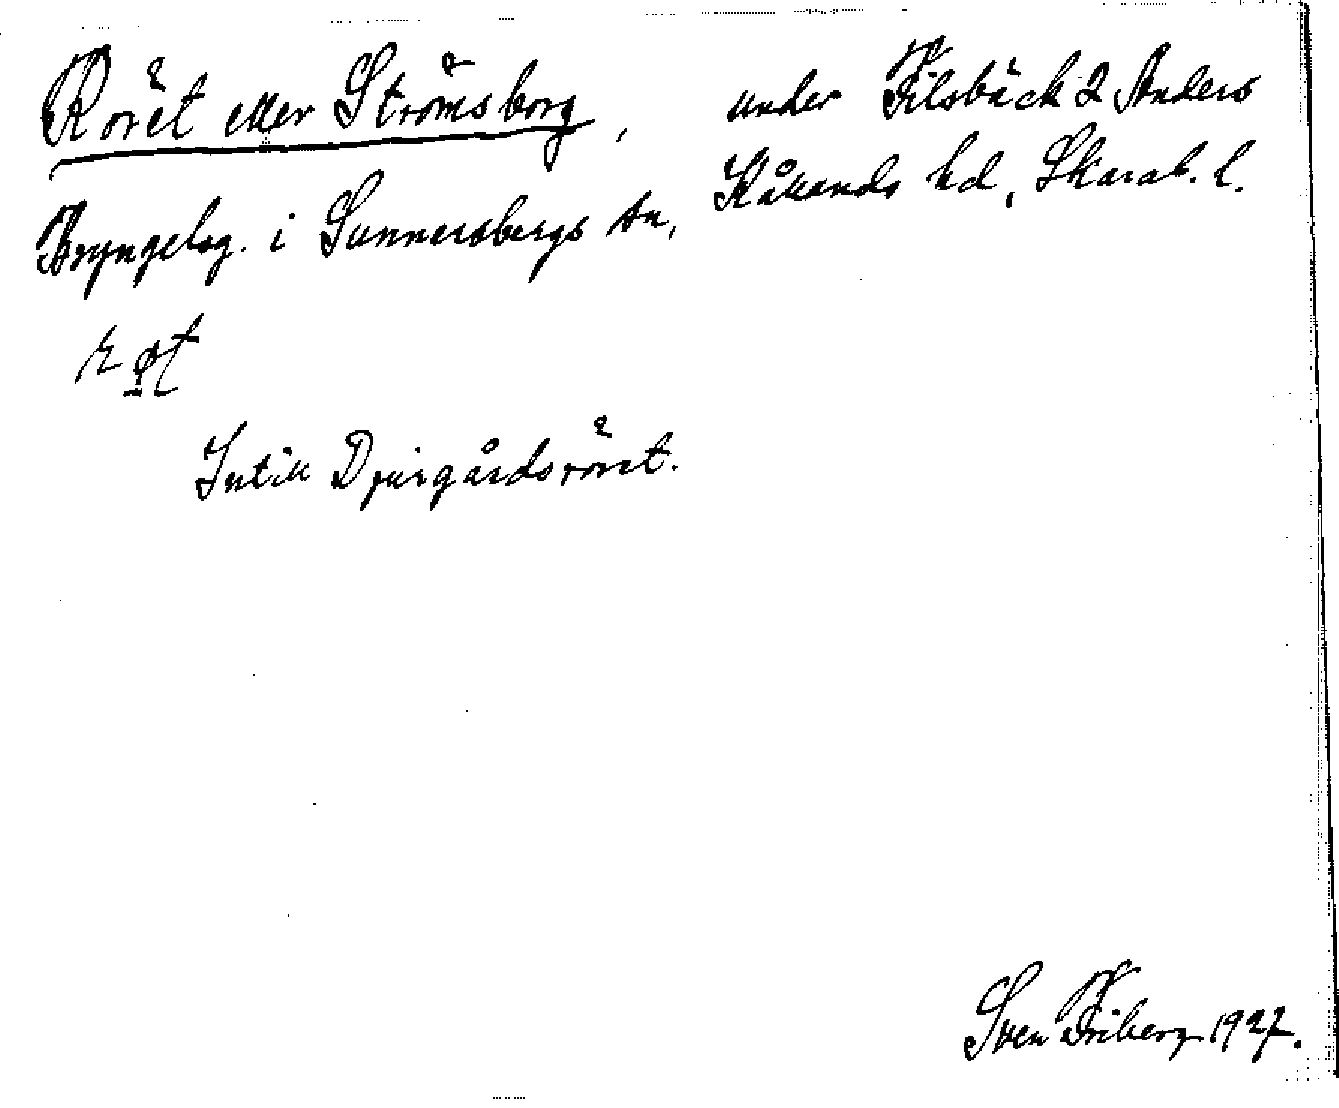 Röret eller Strömsborg, under Filsbäck 2 Anders
Bryngelsg. i Sunnersbergs sn, Kållands hd, Skarab. l.
Intill Djurgårdsröret.
Sven Friberg 1927.